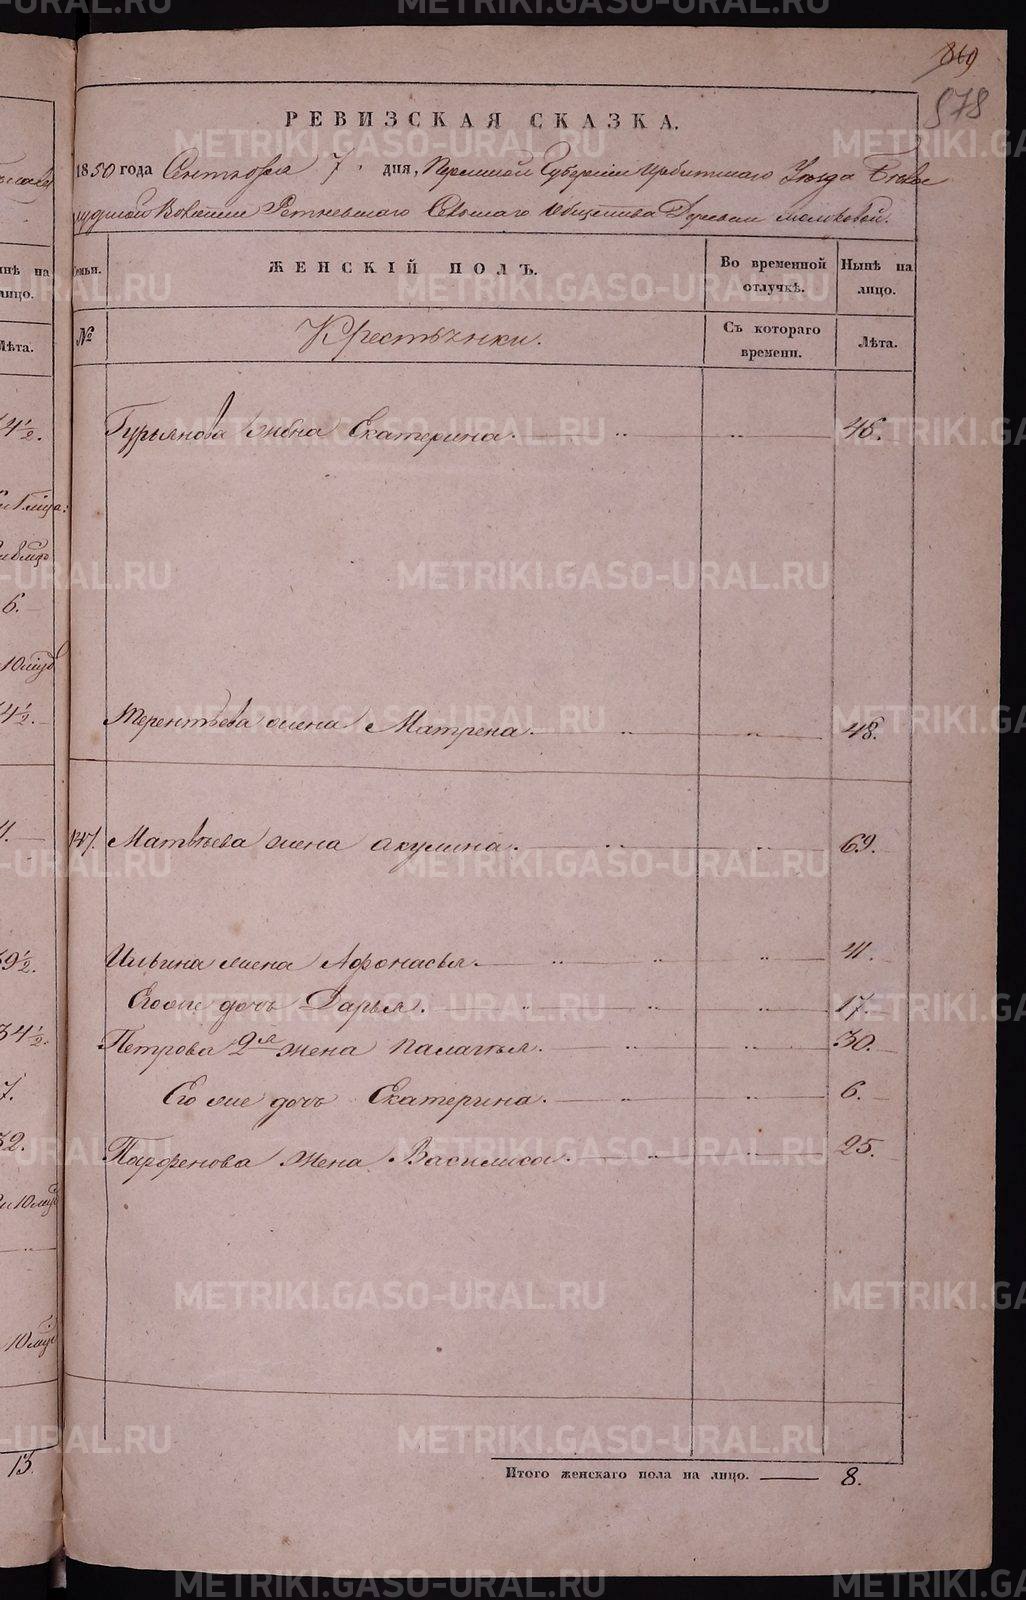 869
878
РЕВИЗСКАЯ СКАЗКА.
1850 года Сентября 7 дня, Пермской Губерніи Ирбитскаго Уѣзда Бѣло
Волости Сельскаго Общества Деревни
Семьи. ЖЕНСКІЙ ПОЛЪ. Во временной отлучкѣ. Нынѣ на лицо.
№ Крестьянки. Съ котораго времени. Лѣта.
Гурьянова жена Екатерина. 46.
Терентьева жена Матрена. 48.
147. Матвѣева жена Акулина. 69.
Ильина жена Афонасья. 41.
Его же дочь Дарья. 17.
Петрова 2я жена Палагья. 30.
Его же дочь Екатерина. 6.
Парфенова жена Василиса. 25.
Итого женскаго пола на лицо. 8.
нѣ на
лицо.
Лѣта.
4½.
6.
10 мѣс
4½.
39½.
34½.
7.
32.
10 мѣс
13
METRIKI.GASO-URAL.RU